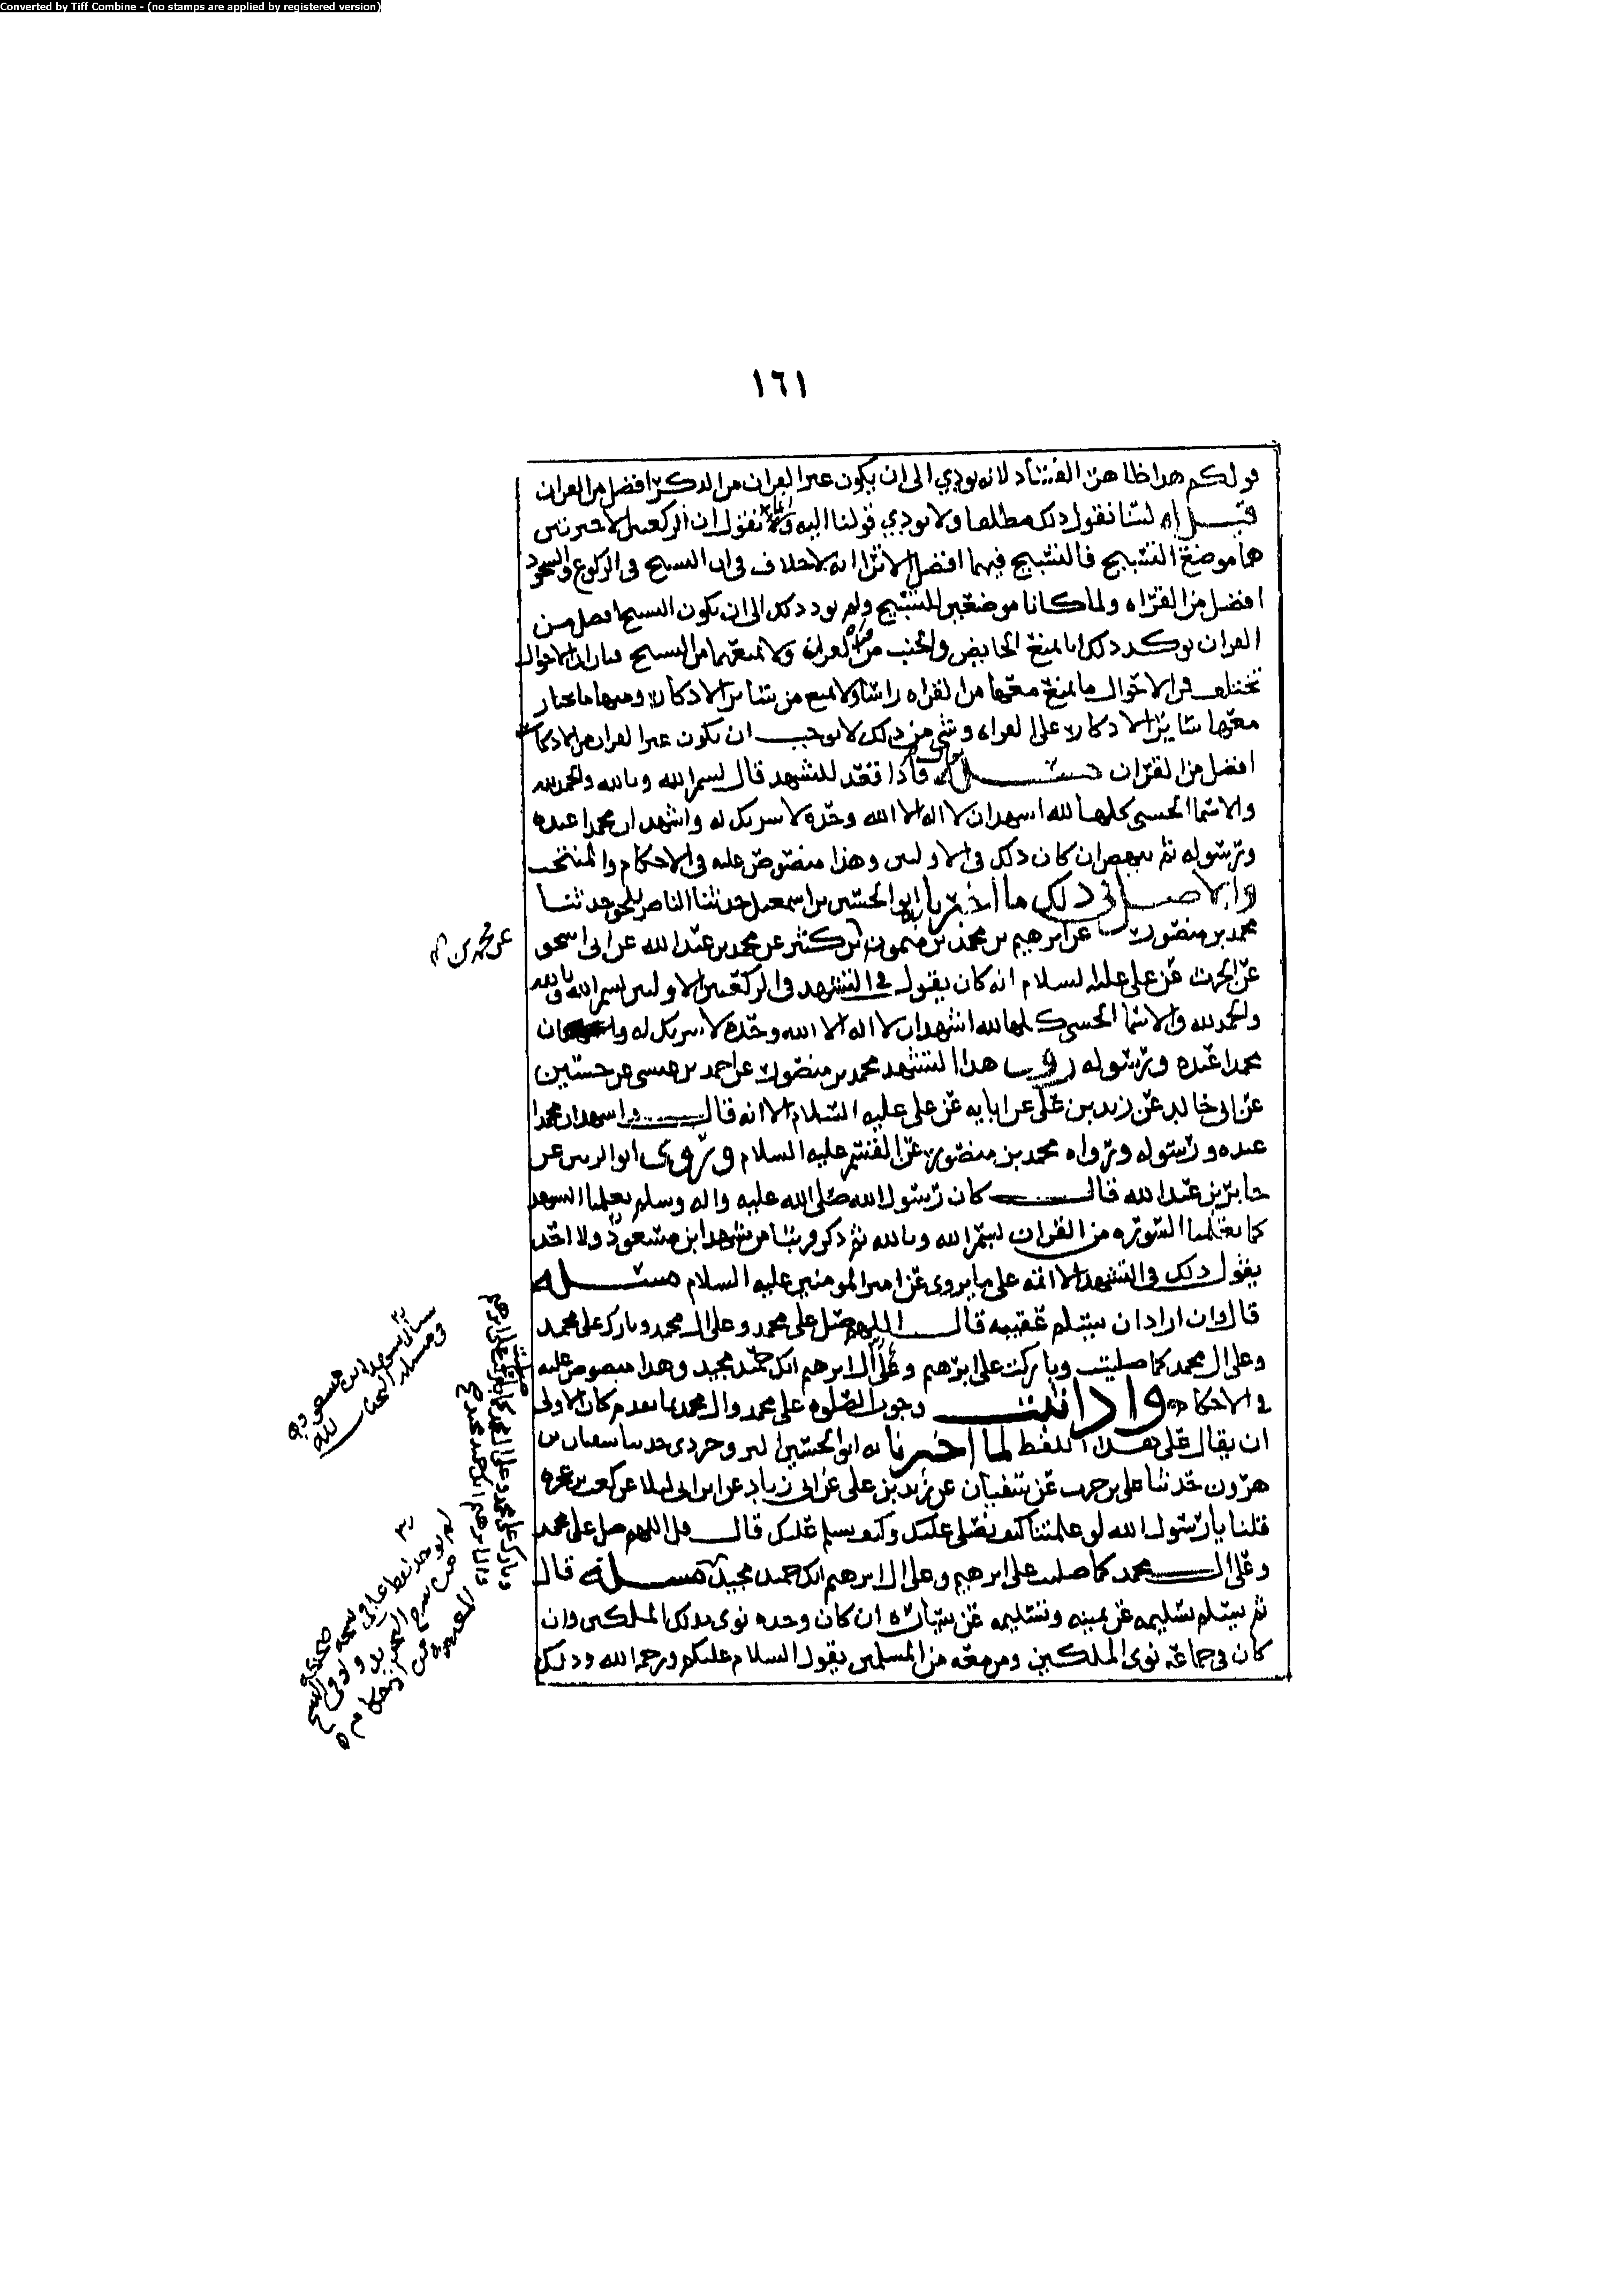 Converted by Tiff Combine - (no stamps are applied by registered version)
١٦١
قولكم هذا ظاهر الفساد لانه يودي الى ان يكون غير القران من الذكر افضل من القران
قيل له لسنا نقول ذلك مطلقا ولا يودي قولنا اليه وانما نقول ان الركعتين الاخرتين
هما موضع التسبيح فالتسبيح فيهما افضل الا ترا انه لا خلاف في ان التسبيح في الركوع والسجود
افضل من القراه ولما كانا موضعين للتسبيح ولم يود ذلك الى ان يكون التسبيح افضل من
القران يوكد ذلك انا نمنع الحايض والجنب من قراه القران ولا نمنعهما من التسبيح فبان ان الاحوال
تختلف فمن الاحوال ما نمنع معها من القراه راسا ولا نمنع من سائر الاذكار ومنها ما نختار
معها سائر الاذكار على القراه وشي من ذلك لا يوجب ان يكون غير القران من الاذكار
افضل من القران مسئله قال فاذا قعد للتشهد قال بسم الله وبالله والحمد لله
والاسما الحسنى كلها لله اشهد ان لا اله الا الله وحده لا شريك له واشهد ان محمدا عبده
ورسوله ثم ينهض ان كان ذلك في الاوليين وهذا منصوص عليه في الاحكام والمنتخب
والاصل في ذلك ما اخبرنا به ابو الحسين بن اسمعيل حدثنا الناصر للحق حدثنا
محمد بن منصور عن ابرهيم بن محمد بن ميمون بن كثير عن محمد بن عبد الله عن ابي اسحق
عن الحرث عن علي عليه السلام انه كان يقول في التشهد في الركعتين الاوليين بسم الله وبالله
والحمد لله والاسما الحسنى كلها لله اشهد ان لا اله الا الله وحده لا شريك له وان
محمدا عبده ورسوله روى هذا التشهد محمد بن منصور عن احمد بن عيسى عن حسين
عن ابي خالد عن زيد بن علي عن ابايه عن علي عليه السلام الا انه قال واشهد ان محمدا
عبده ورسوله ورواه محمد بن منصور عن القسم عليه السلام وروى ابو الزبير عن
جابر بن عبد الله قال كان رسول الله صلى الله عليه واله وسلم يعلمنا التشهد
كما يعلمنا السوره من القران بسم الله وبالله ثم ذكر قريبا من تشهد ابن مسعود ولا احد
يقول ذلك في التشهد الا ائمه على ما يروى عن امير المومنين عليه السلام مسئله
قال وان اراد ان يسلم عقيبه قال اللهم صل على محمد وعلى ال محمد وبارك على محمد
وعلى ال محمد كما صليت وباركت على ابرهيم وعلى ال ابرهيم انك حميد مجيد وهذا منصوص عليه
في الاحكام واذا ثبت وجوب الصلوه على محمد وال محمد بما تقدم كان الاولى
ان يقال على هذا اللفظ لما اخبرنا به ابو الحسين البروجردي حدثنا سفيان بن
هرون حدثنا علي بن حرب عن سفيان عن يزيد بن علي عن ابي زياد عن ابن ابي ليلا عن كعب بن عجره
قلنا يا رسول الله لو علمتنا كيف نصلي عليك وكيف نسلم عليك قال قل اللهم صل على محمد
وعلى ال محمد كما صليت على ابرهيم وعلى ال ابرهيم انك حميد مجيد مسئله قال
ثم يسلم تسليمه عن يمينه وتسليمه عن يساره ان كان وحده نوى بذلك الملكين وان
كان في جماعه نوى الملكين ومن معه من المسلمين يقول السلام عليكم ورحمه الله وذلك
عن محمد بن